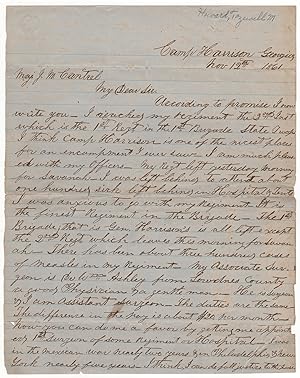 Howard, Tazwell M.
Camp Harrison Georgia
Nov 19th 1861
Maj J. M. Cantrel
My Dear Sir
According to promise I now
write you – I reached my Regiment the 3rd Inst
which is the 1st Regt in the 1st Brigade State Troops
I think Camp Harrison is one of the nicest places
for an incampment I ever saw. I am much pleas
ed with my officers. My Regt left yesterday morning
for Savanah. I was left behind to attend about
one hundred sick left behind in Hospital & Tents
I was anxious to go with my Regiment. It is
the finest Regiment in the Brigade – The 1st
Brigade, that is Gen. Harrison's is all left except
the 2nd Regt which leaves this morning for Savan
ah – There has been about three hundred cases
of Measles in my Regiment – My Associate Sur
geon is Dr Ashley from Lowndes County
a good Physician & a gentleman – He is Surgeon
& I am Assistant Surgeon. The duties are the same
The difference in the pay is about per month –
Now you can do me a favor by getting me a appoint
1st Surgeon of some Regiment or Hospital – I was
in the mexican war nearly two years & in Philadelphia & New
York nearly five years. I think I can do full justice to the